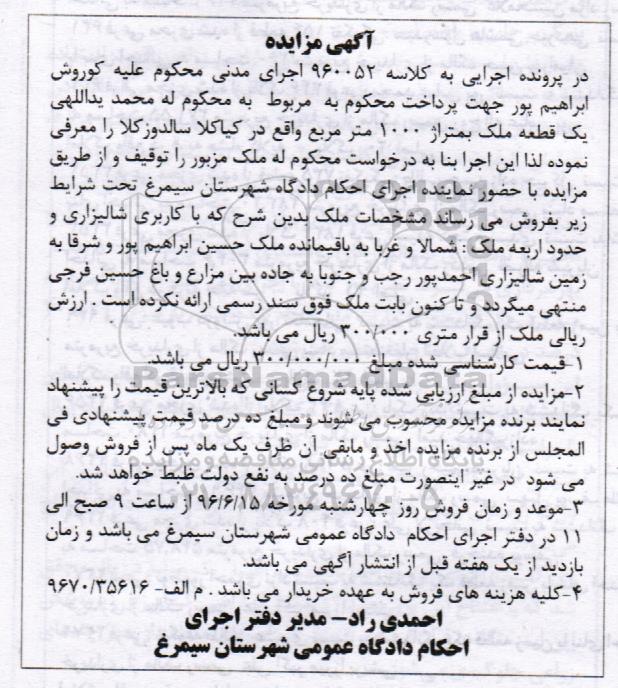 آگهی مزایده
در پرونده اجرایی به کلاسه ۹۶۰۰۵۲ اجرای مدنی محکوم علیه کوروش
ابراهیم پور جهت پرداخت محکوم به مربوط به محکوم له محمد یداللهی
یک قطعه ملک بمتراژ ۱۰۰۰ متر مربع واقع در کیاکلا سالدوزکلا را معرفی
نموده لذا این اجرا بنا به درخواست محکوم له ملک مزبور را توقیف و از طریق
مزایده با حضور نماینده اجرای احکام دادگاه شهرستان سیمرغ تحت شرایط
زیر بفروش می رساند مشخصات ملک بدین شرح که با کاربری شالیزاری و
حدود اربعه ملک : شمالا و غربا به باقیمانده ملک حسین ابراهیم پور و شرقا به
زمین شالیزاری احمدپور رجب و جنوبا به جاده بین مزارع و باغ حسین فرجی
منتهی میگردد و تا کنون بابت ملک فوق سند رسمی ارائه نکرده است . ارزش
ریالی ملک از قرار متری ۳۰۰/۰۰۰ ریال می باشد.
۱-قیمت کارشناسی شده مبلغ ۳۰۰/۰۰۰/۰۰۰ ریال می باشد.
۲-مزایده از مبلغ ارزیابی شده پایه شروع کسانی که بالاترین قیمت را پیشنهاد
نمایند برنده مزایده محسوب می شوند و مبلغ ده درصد قیمت پیشنهادی فی
المجلس از برنده مزایده اخذ و مابقی آن ظرف یک ماه پس از فروش وصول
می شود در غیر اینصورت مبلغ ده درصد به نفع دولت ظبط خواهد شد.
۳-موعد و زمان فروش روز چهارشنبه مورخه ۹۶/۶/۱۵ از ساعت ۹ صبح الی
۱۱ در دفتر اجرای احکام دادگاه عمومی شهرستان سیمرغ می باشد و زمان
بازدید از یک هفته قبل از انتشار آگهی می باشد.
۴-کلیه هزینه های فروش به عهده خریدار می باشد . م الف- ۹۶۷۰/۳۵۶۱۶
احمدی راد- مدیر دفتر اجرای
احکام دادگاه عمومی شهرستان سیمرغ
ParsNamadData
پایگاه اطلاع رسانی مناقصه و مزایده
۰۲۱-۸۸۳۴۹۶۷۰-۵